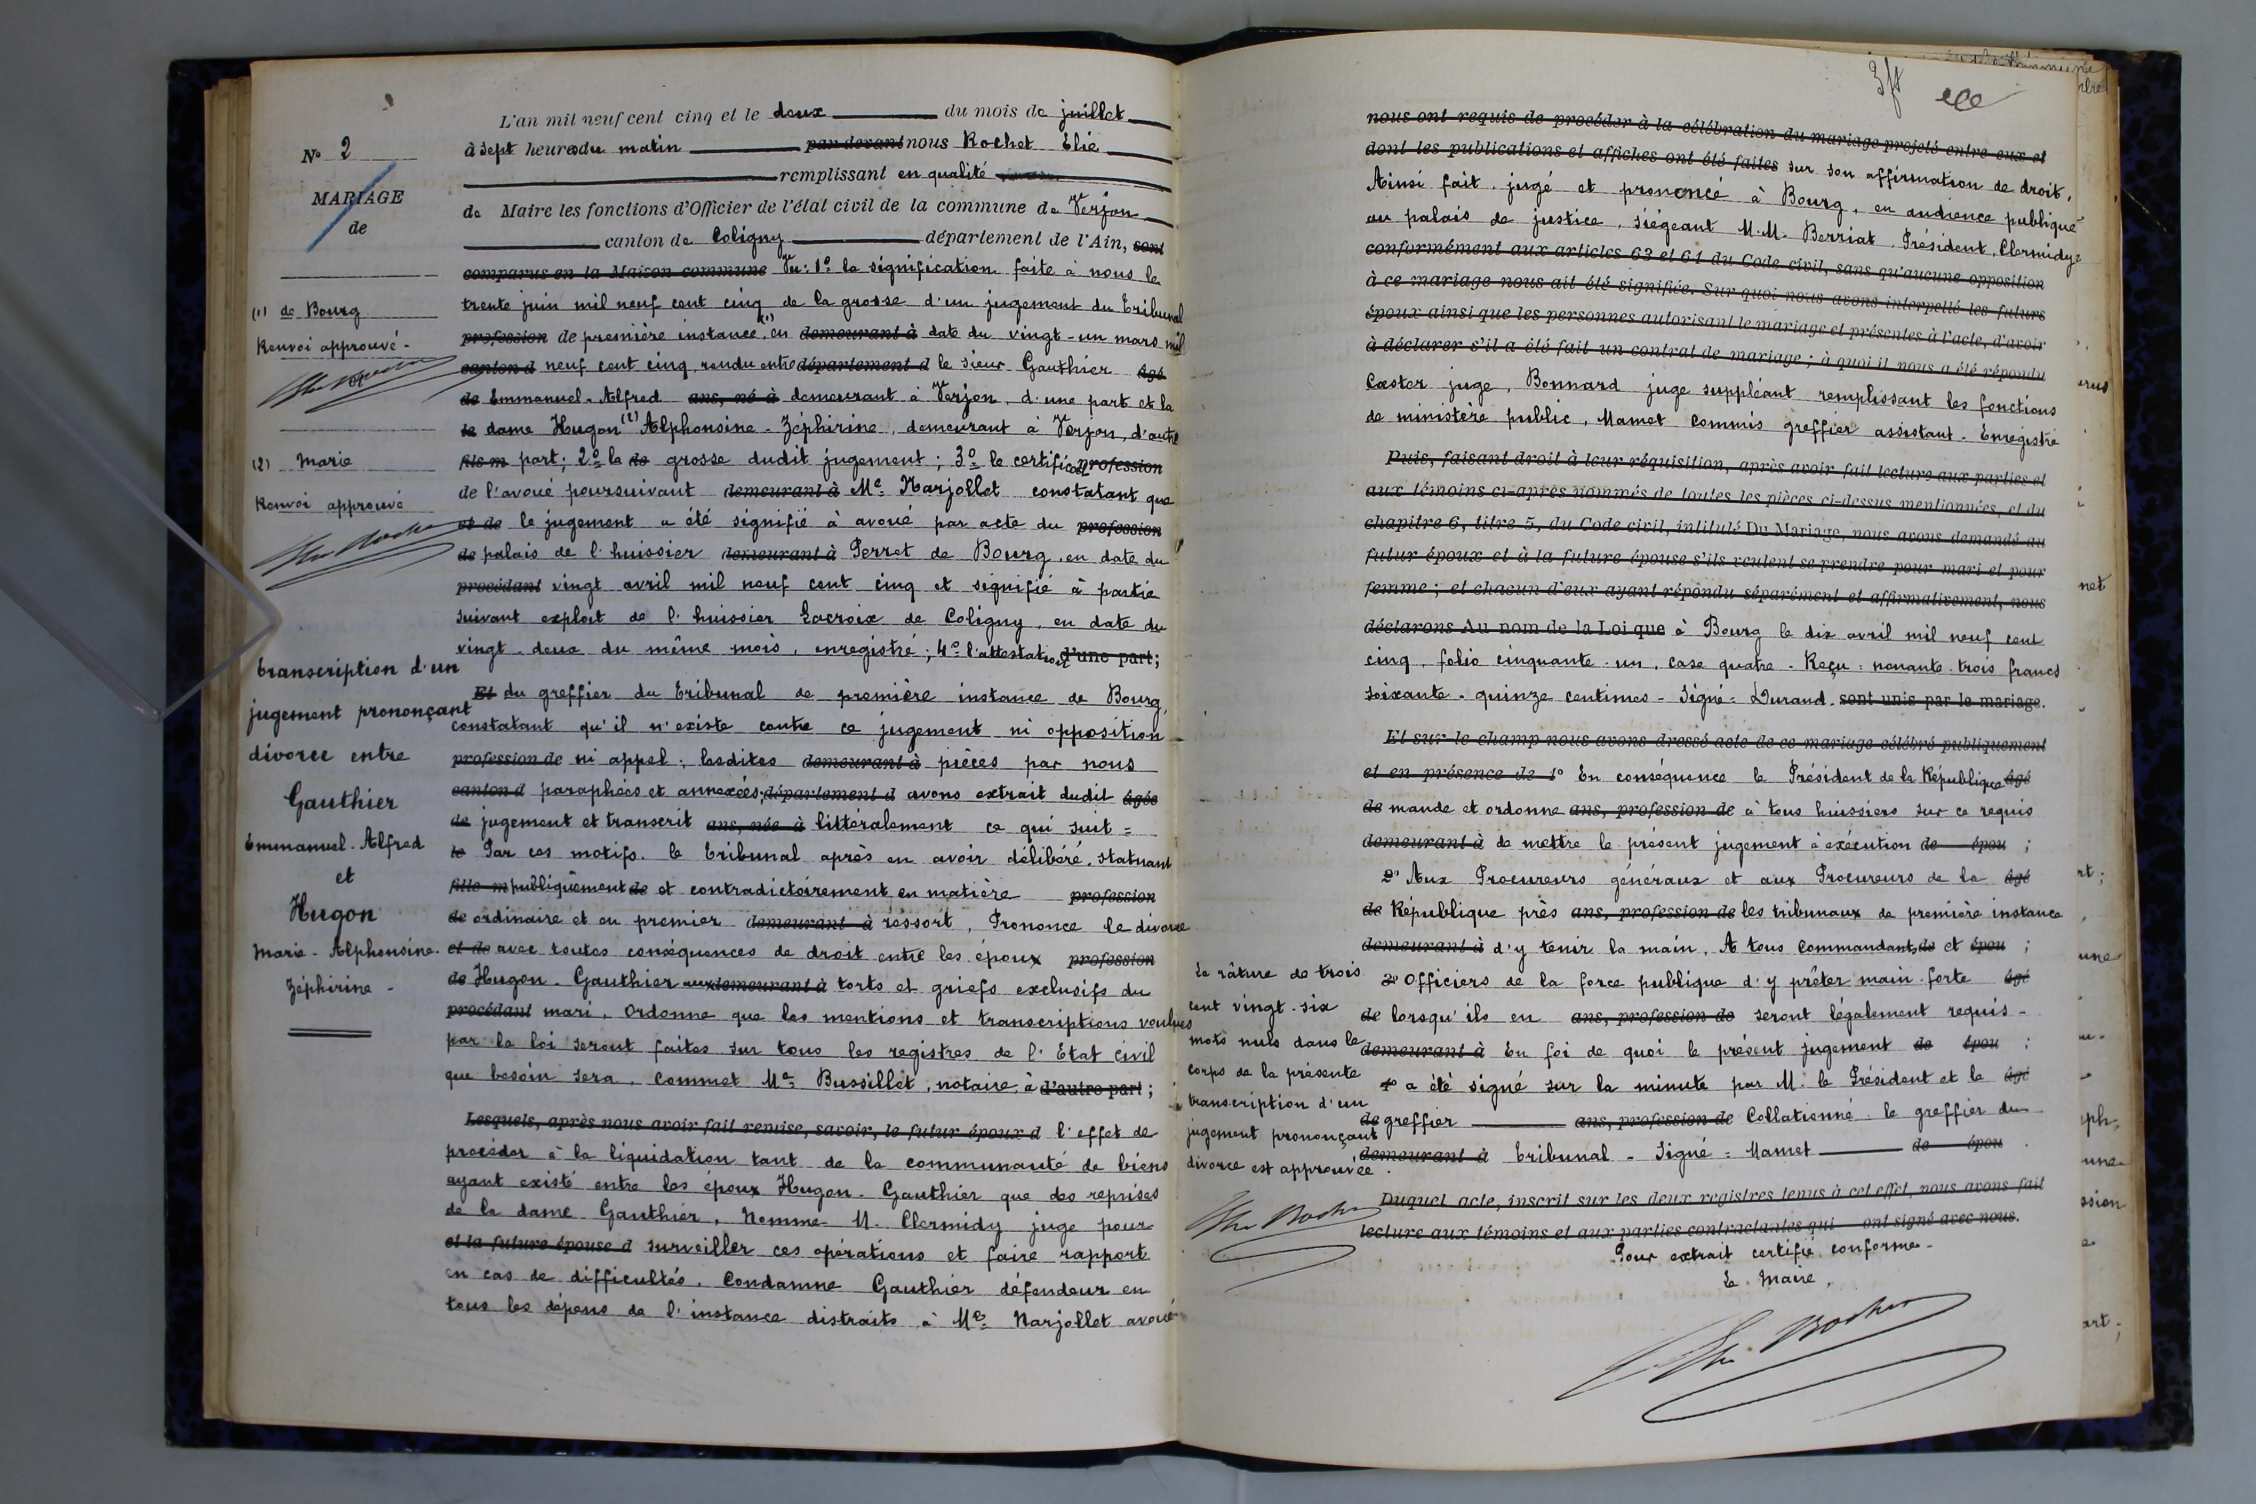 No 2
MARIAGE
de
(1) de Bourg
Renvoi approuvé -
(2) Marie
Renvoi approuvé
transcription d'un
jugement prononçant
divorce entre
Gauthier
Emmanuel-Alfred
et
Hugon
Marie-Alphonsine-
Zéphirine -
L'an mil neuf cent cinq et le deux du mois de juillet
à sept heures du matin par devant nous Rochet Elie
remplissant en qualité
de Maire les fonctions d'Officier de l'état civil de la commune de Verjon
canton de Coligny département de l'Ain, sont
comparus en la Maison commune Vu: 1o la signification faite à nous le
trente juin mil neuf cent cinq de la grosse d'un jugement du Tribunal
profession de première instance (1) en demeurant à date du vingt-un mars mil
canton d neuf cent cinq, rendu entre département d le sieur Gauthier âgé
de Emmanuel-Alfred ans, né à demeurant à Verjon, d'une part et la
le dame Hugon (2) Alphonsine-Zéphirine, demeurant à Verjon, d'autre
fils m part; 2o la de grosse dudit jugement; 3o le certificat profession
de l'avoué poursuivant demeurant à Me Narjollet constatant que
et de le jugement a été signifié à avoué par acte du profession
de palais de l'huissier demeurant à Perret de Bourg, en date du
procédant vingt avril mil neuf cent cinq et signifié à partie
suivant exploit de l'huissier Lacroix de Coligny, en date du
vingt-deux du même mois, enregistré; 4o l'attestation d'une part;
Et du greffier du Tribunal de première instance de Bourg,
constatant qu'il n'existe contre ce jugement ni opposition
profession de ni appel; lesdites demeurant à pièces par nous
canton d paraphées et annexées; département d avons extrait dudit âgée
de jugement et transcrit ans, née à littéralement ce qui suit =
le Par ces motifs. le Tribunal après en avoir délibéré, statuant
fille m publiquement de et contradictoirement en matière profession
de ordinaire et en premier demeurant à ressort, Prononce le divorce
et de avec toutes conséquences de droit entre les époux profession
de Hugon-Gauthier aux demeurant à torts et griefs exclusifs du
procédant mari, Ordonne que les mentions et transcriptions voulues
par la loi seront faites sur tous les registres de l'Etat civil
que besoin sera, Commet Me Bussillet, notaire, à d'autre part;
Lesquels, après nous avoir fait remise, savoir, le futur époux d l'effet de
procéder à la liquidation tant de la communauté de biens
ayant existé entre les époux Hugon-Gauthier que des reprises
de la dame Gauthier, Nomme M. Clermidy juge pour
et la future épouse d surveiller ces opérations et faire rapport
en cas de difficultés. Condamne Gauthier défendeur en
tous les dépens de l'instance distraits à Me Narjollet avoué
nous ont requis de procéder à la célébration du mariage projeté entre eux et
dont les publications et affiches ont été faites sur son affirmation de droit,
Ainsi fait, jugé et prononcé à Bourg, en audience publique
au palais de justice, siégeant M.M. Berriat, Président, Clermidy
conformément aux articles 63 et 64 du Code civil, sans qu'aucune opposition
à ce mariage nous ait été signifiée. Sur quoi nous avons interpellé les futurs
époux ainsi que les personnes autorisant le mariage et présentes à l'acte, d'avoir
à déclarer s'il a été fait un contrat de mariage; à quoi il nous a été répondu
Caster juge, Bonnard juge suppléant remplissant les fonctions
de ministère public, Mamet commis greffier assistant. Enregistré
Puis, faisant droit à leur réquisition, après avoir fait lecture aux parties et
aux témoins ci-après nommés de toutes les pièces ci-dessus mentionnées, et du
chapitre 6, titre 5, du Code civil, intitulé Du Mariage, nous avons demandé au
futur époux et à la future épouse s'ils veulent se prendre pour mari et pour
femme; et chacun d'eux ayant répondu séparément et affirmativement, nous
déclarons Au nom de la Loi que à Bourg le dix avril mil neuf cent
cinq, folio cinquante-un, case quatre. Reçu: nonante-trois francs
soixante-quinze centimes - Signé = Durand. sont unis par le mariage.
Et sur-le-champ nous avons dressé acte de ce mariage célébré publiquement
et en présence de 1o En conséquence le Président de la République âgé
de mande et ordonne ans, profession de à tous huissiers sur ce requis
demeurant à de mettre le présent jugement à exécution de épou ;
2o Aux Procureurs généraux et aux Procureurs de la âgé
de République près ans, profession de les tribunaux de première instance
demeurant à d'y tenir la main, A tous Commandants de et épou ;
3o Officiers de la force publique d'y prêter main-forte âgé
de lorsqu'ils en ans, profession de seront légalement requis -
demeurant à En foi de quoi le présent jugement de épou ;
4o a été signé sur la minute par M. le Président et le âgé
de greffier ans, profession de Collationné. le greffier du
demeurant à Tribunal - Signé = Mamet de épou .
Duquel acte, inscrit sur les deux registres tenus à cet effet, nous avons fait
lecture aux témoins et aux parties contractantes qui ont signé avec nous.
Pour extrait certifié conforme -
Le Maire,
Elie Rochet
La râture de trois
cent vingt-six
mots nuls dans le
corps de la présente
transcription d'un
jugement prononçant
divorce est approuvée.
Elie Rochet